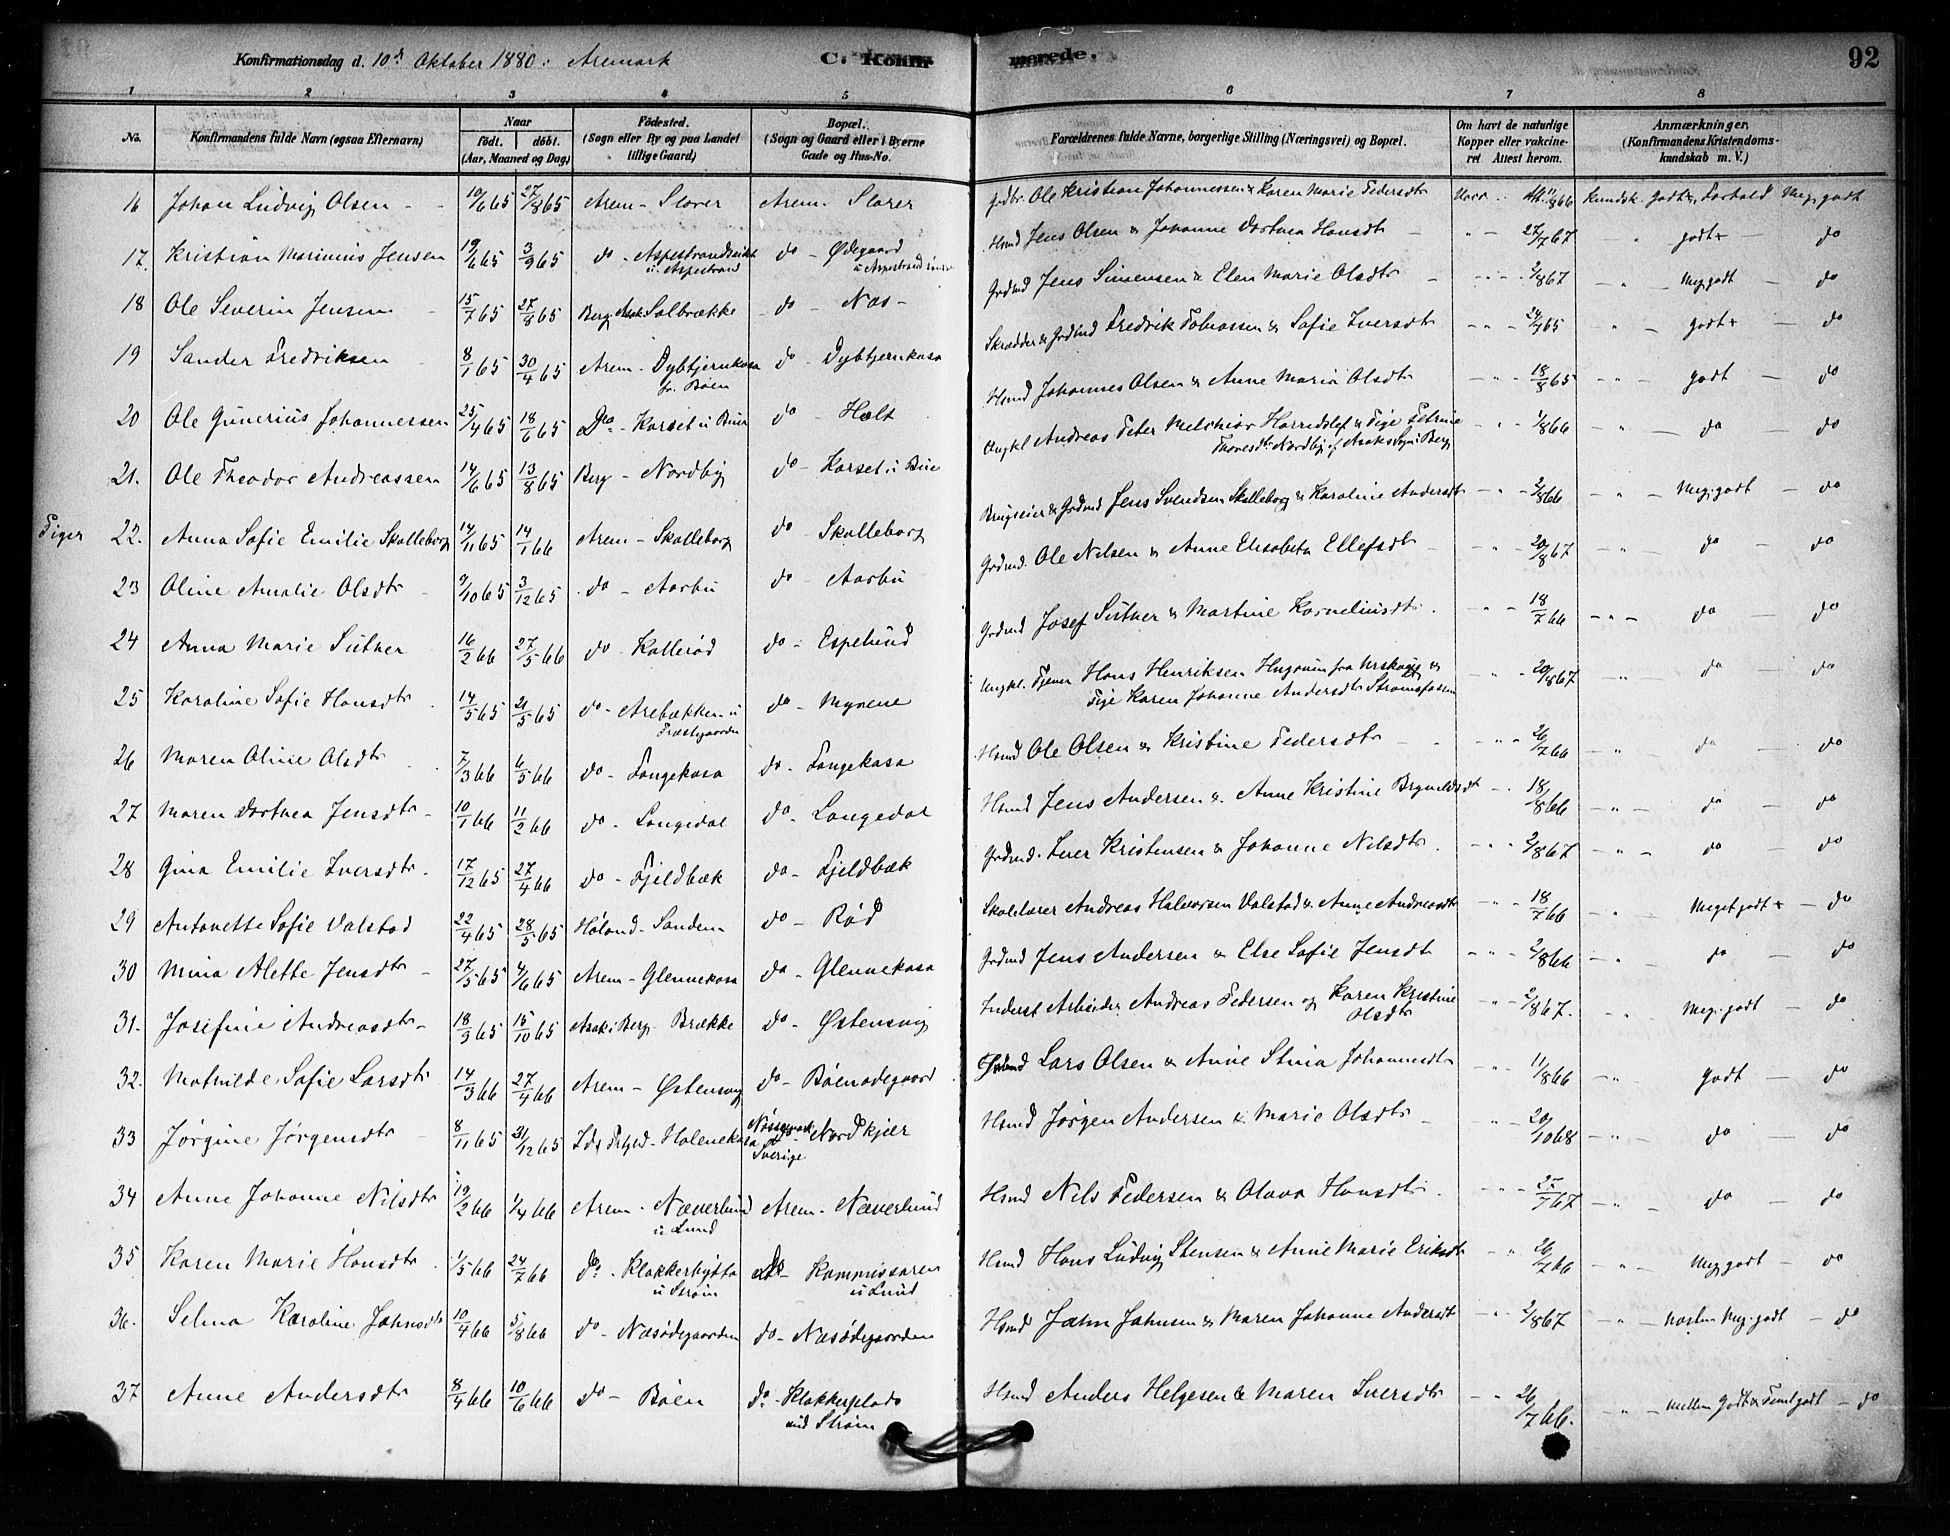 Konfirmationsdag d. 10de Oktober 1880. Aremark C. Konfir merede. 92
1 2 3 4 5 6 7 8
No. Konfirmandens fulde Navn (ogsaa Efternavn) Naar født. døbt. (Aar, Maaned og Dag) Fødested. (Sogn eller By og paa Landet tillige Gaard) Bopæl. (Sogn og Gaard eller i Byerne Gade og Hus-No. Forældrenes fulde Navne, borgerlige Stilling (Næringsvei) og Bopæl. Om havt de naturlige Kopper eller vakcineret Attest herom. Anmærkninger. (Konfirmandens Kristendomskundskab m. V.)
16 Johan Ludvig Olsen 10/6 65 27/8 65 Arem - Slorer Arem. Slorer Ole Kristian Johannessen & Karen Marie Pedersdtr Vacc. 11/8 66 Kundsk. godt, Forhold Meg. godt
17. Kristian Marinius Jensen 19/6 65 3/9 65 do - Aspestrand do - Ødegaard u Aspestrand Hsmd Jens Olsen & Johanne Dorthea Hansdtr - " - 27/7 67 - " - godt - do
18 Ole Severin Jensen 15/7 65 27/8 65 Berg Solbrække do - Næs - Grdmd Jens Simensen & Elen Marie Olsdtr - " - 2/8 67 - " - Meg. godt - do
19 Sander Fredriksen 8/1 65 30/4 65 Arem - Dybtjernkasa do - Dybtjernkasa Skrædder & Grdmd Fredrik Tobiassen & Sofie Iversdtr - " - 24/7 65 - " - godt - do
20 Ole Gunerius Johannessen 25/4 65 18/6 65 Do - Korset u Bue do - Holt Hsmd Johannes Olsen & Anne Maria Olsdtr - " - 18/8 65 - " - godt - do
21. Ole Theodor Andreassen 14/6 65 13/8 65 Berg - Nordby do - Korset u Bue Ungkl Andreas Peter Melchior & Pige Petrine Thoresdtr Nordby - " - 1/8 66 - " - do - do
Piger 22. Anna Sofie Emilie Skolleborg 14/11 65 14/1 66 Arem - Skolleborg do - Skolleborg Brugseier & Grdmd Jens Svendsen Skolleborg & Karoline Andersdtr - " - 2/8 66 - " - Meg. godt - do
23 Oline Amalie Olsdtr 9/10 65 3/12 65 do - Aarbu do - Aarbu Grdmd. Ole Nilsen & Anne Elisabeta Ellefsdtr - " - 20/8 67 - " - do - do
24 Anna Marie Sutner 16/2 66 27/5 66 do - Kollerød do - Espelund Grdmd Josef Sutner & Martine Korneliusdtr - " - 18/7 66 - " - do - do
25 Karoline Sofie Hansdtr 14/5 65 21/5 65 do - Arebækken u Præstgaarden do - Myrene Ungkl. Tjener Hans Henriksen fra Urskoug & Pige Karen Johanne Andersdtr - " - 20/8 67 do - do
26 Maren Oline Olsdtr 7/3 66 6/5 66 do - Langekasa do - Langekasa Hsmd Ole Olsen & Kristine Pedersdtr - " - 26/7 66 - " - do - do
27 Maren Dorthea Jensdtr 10/1 66 11/2 66 do - Langedal do - Langedal Hsmd Jens Andersen & Anne Kristine Brynildsdtr - " - 18/8 66 - " - do - do
28 Gina Emilie Iversdtr 17/12 65 27/4 66 do - Fjeldbæk do - Fjeldbæk Grdmd. Iver Kristensen & Johanne Nilsdtr - " - 2/8 67 - " - do - do
29 Antonette Sofie Valstad 22/4 65 28/5 65 Høland - Sanden do - Rød Skolelærer Andreas Halvorsen Valstad & Anne Andreasdtr - " - 18/7 66 - " - Meget godt - do
30 Mina Alette Jensdtr 27/5 65 4/6 65 Arem - Glennekasa do - Glennekasa Grdmd Jens Andersen & Else Sofie Jensdtr - " - 2/8 66 - " - do - do
31. Josefine Andreasdtr 18/9 65 15/10 65 Asak i Berg - Brække do - Østensvig Inderst Arbeider Andreas Pedersen og Karen Kristine Olsdtr - " - 2/8 67. - " - Meg. godt - do
32. Mathilde Sofie Larsdtr 14/3 66 27/4 66 Arem - Østensvig do - Bøenødegaard Lars Olsen & Anne Stina Johannesdtr - " - 11/8 66 - " - godt - do
33 Jørgine Jørgensdtr 8/11 65 31/12 65 Ids Holenekasa Nøssemark Sverige - Nordkjær Hsmd Jørgen Andersen & Marie Olsdtr - " - 20/10 68 - " - do - do
34 Anne Johanne Nilsdtr 19/2 66 1/4 66 Arem - Næverlund u Lund Arem - Næverlund Hsmd Nils Pedersen & Olava Hansdtr - " - 27/7 67 - " - do - do
35 Karen Marie Hansdtr 1/5 66 24/7 66 do - Klakkerhytta u Strøm do - Kommissaren u Lund Hsmd Hans Ludvig Stensen & Anne Marie Eriksdtr - " 26/7 66 - " - Meg. godt - do
36. Selma Karoline Johnsdtr 10/4 66 5/8 66 do - Næsødegaarden do - Næsødegaarden Hsmd John Johnsen & Maren Johanne Andersdtr - " - 2/8 67 - " - næsten Meg. godt - do
37 Anne Andersdtr 8/4 66 10/6 66 do - Bøen do - Klakkersplads und Strøm Hsmd Anders Helgesen & Maren Iversdtr - " 26/7 66. - " - mellem Godt & Temt godt - do